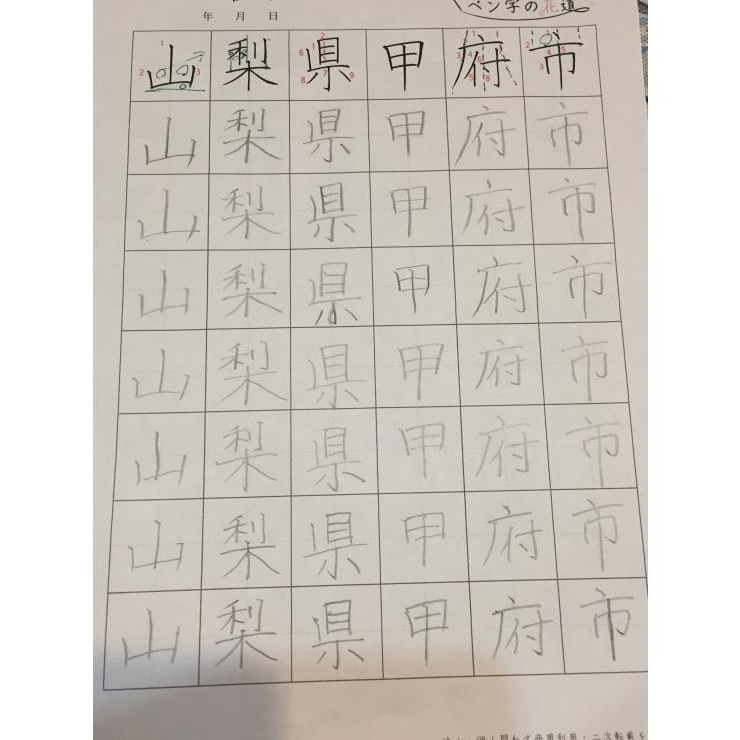 年 月 日
ペン字の花道
山梨県甲府市
山梨県甲府市
山梨県甲府市
山梨県甲府市
山梨県甲府市
山梨県甲府市
山梨県甲府市
山梨県甲府市